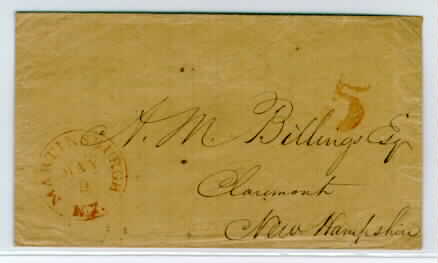 5
MARTINSBURGH
MAY
9
N.Y.
A. M. Billings Esq
Claremont
New Hampshire